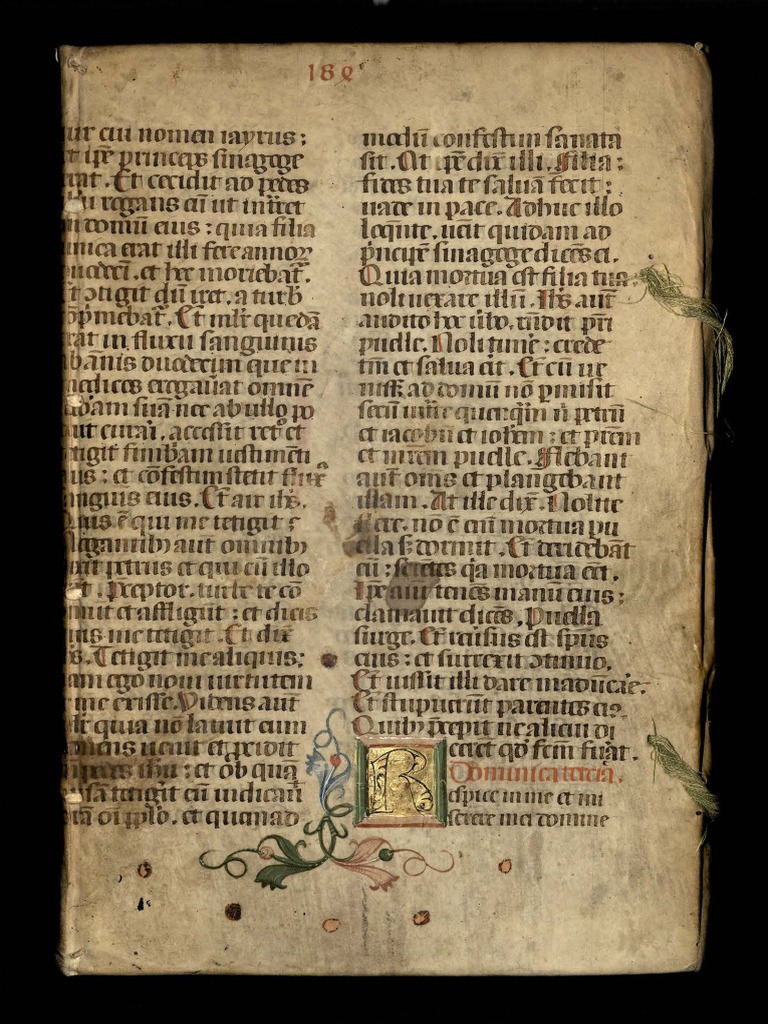 189
ur cui nomen iayrus :
t ip̄e princeps sinagoge
rat . Et cecidit ad pedes
u rogans eū ut int̄ret
n domū eius : quia filia
nica erat illi fere annoꝝ
uodecī . et hec moriebat̄ .
t ↄtigit dū iret . a turb
op̄mebat̄ . Et ml̄r quedā
rat in fluxu sanguinis
b ānis duodecim que in
edicos erogauat omnē
bdam suā nec ab ullo po
uit curari . accessit ret̄o et
etigit fimbriam uestimēti
ius : et cōfestim stetit flux
anguis eius . Et ait ih̄s .
uis ē qui me tetigit :
egantibꝫ aut̄ omnibꝫ
ixit petrus et qui cū illo
t . Preceptor . turbe te cō
mūt et affligūt : et dicis
uis me tetigit . Et dix̄
s . Tetigit me aliquis :
am ego noui uirtutem
me exisse . Videns aut̄
ml̄r quia nō latuit eum
emens uenit et p̄cidit
pedes ihu : et ob quā
ā tetigit eū indicauī
rā oī pp̄lo . et quemad
modū confestim sanata
sit . At ip̄e dix̄ illi . Filia :
fides tua te saluā fecit :
uade in pace . Adhuc illo
loqn̄te . ueīt quidam ad
p̄ncipē sinagoge dicēs ei .
Quia mortua est filia tua .
noli uexare illū . Ih̄s aut̄
audito hoc ūbo . rn̄dit pr̄i
puelle . Noli time : crede
tm̄ et salua eit . Et cū ue
nissꝫ ad domū nō p̄misit
secū int̄re quēqm̄ n̄ petrū
et iacobū et ioh̄em : et pr̄em
et mr̄em puelle . Flebant
aut̄ om̄s et plangebant
illam . At ille dix̄ . Nolite
flere . nō ē eī mortua pu
ella sꝫ dormit . Et deridebāt
eū : scientes qā mortua eēt .
Ip̄e aut̄ tenēs manū eius :
clamauit dicēs . Puella
surge . Et reūsus est sp̄us
eius : et surrexit ↄtinuo .
Et iussit illi dare māducāe .
Et stupuerūt parentes eiꝰ .
Quibꝫ p̄cepit ne alicui di
ceret qd̄ fcm̄ fuāt .
Dominica tercia .
Respice in me et mi
serere mei domine